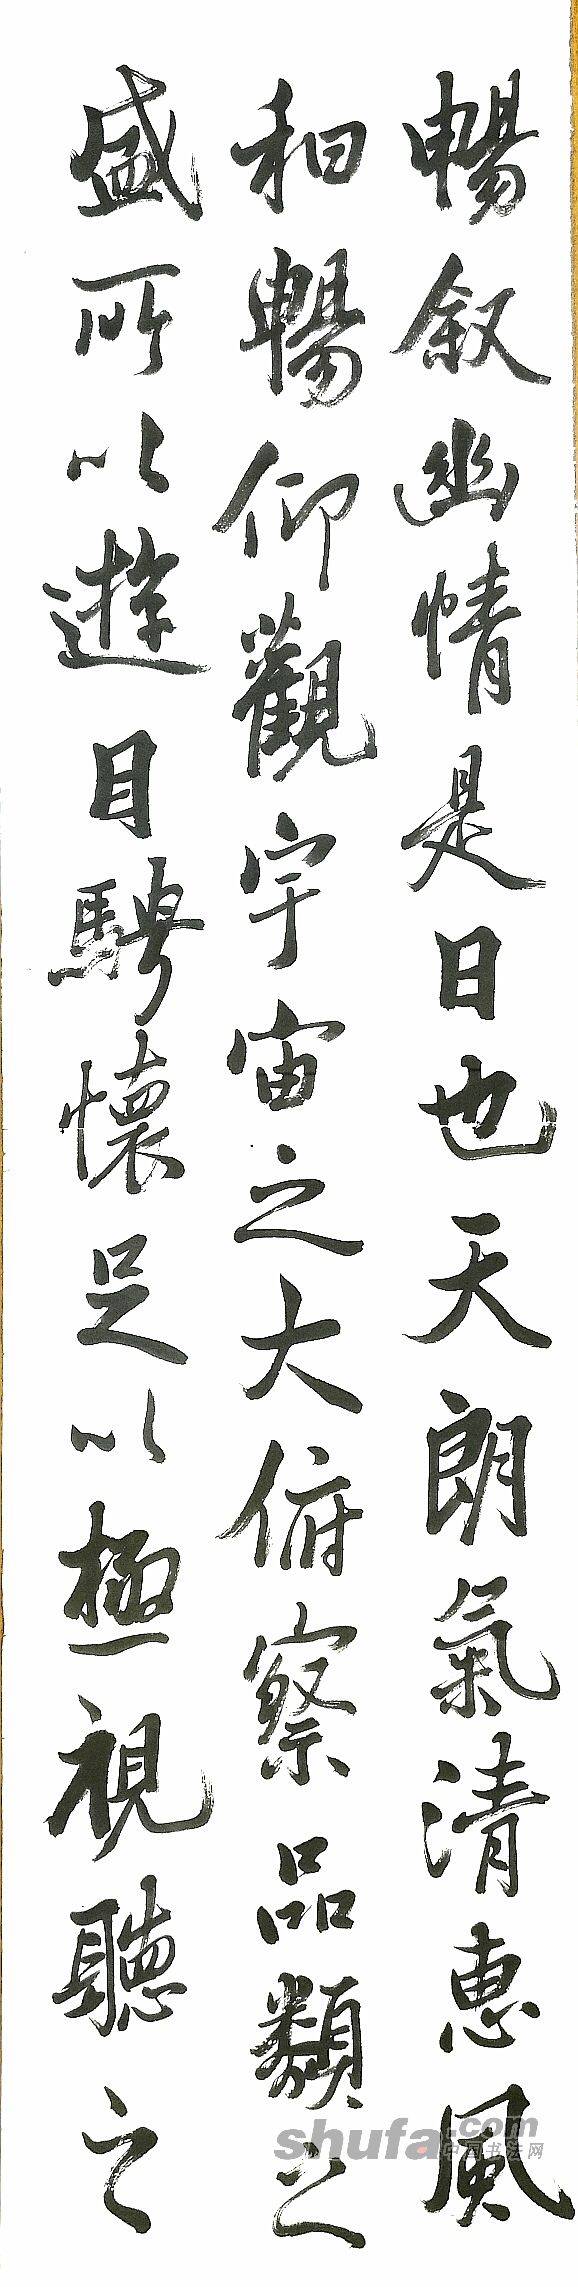 暢叙幽情是日也天朗氣清惠風
和暢仰觀宇宙之大俯察品類之
盛所以遊目騁懷足以極視聽之
shufa.com
中国书法网